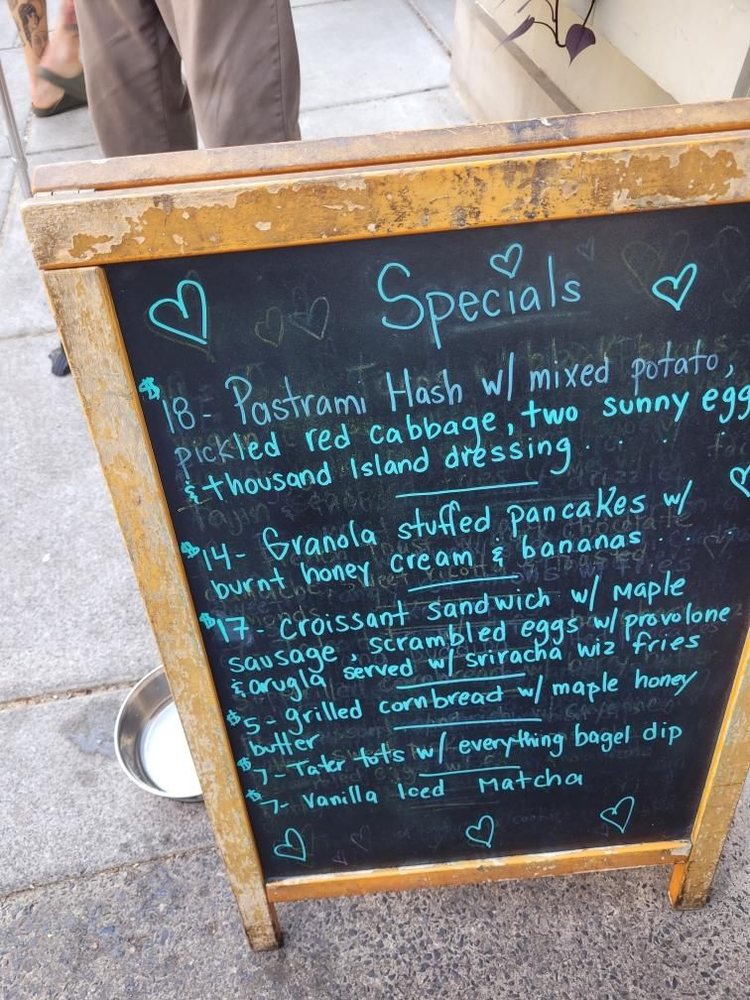 Specials
$18 - Pastrami Hash w/ mixed potato,
pickled red cabbage, two sunny egg
& thousand Island dressing . . . .
$14 - Granola stuffed pancakes w/
burnt honey cream & bananas . . .
$17 - croissant sandwich w/ maple
sausage, scrambled eggs w/ provolone
& arugla served w/ sriracha wiz fries
$5 - grilled cornbread w/ maple honey
butter
$7 - Tater tots w/ everything bagel dip
$7 - Vanilla Iced Matcha